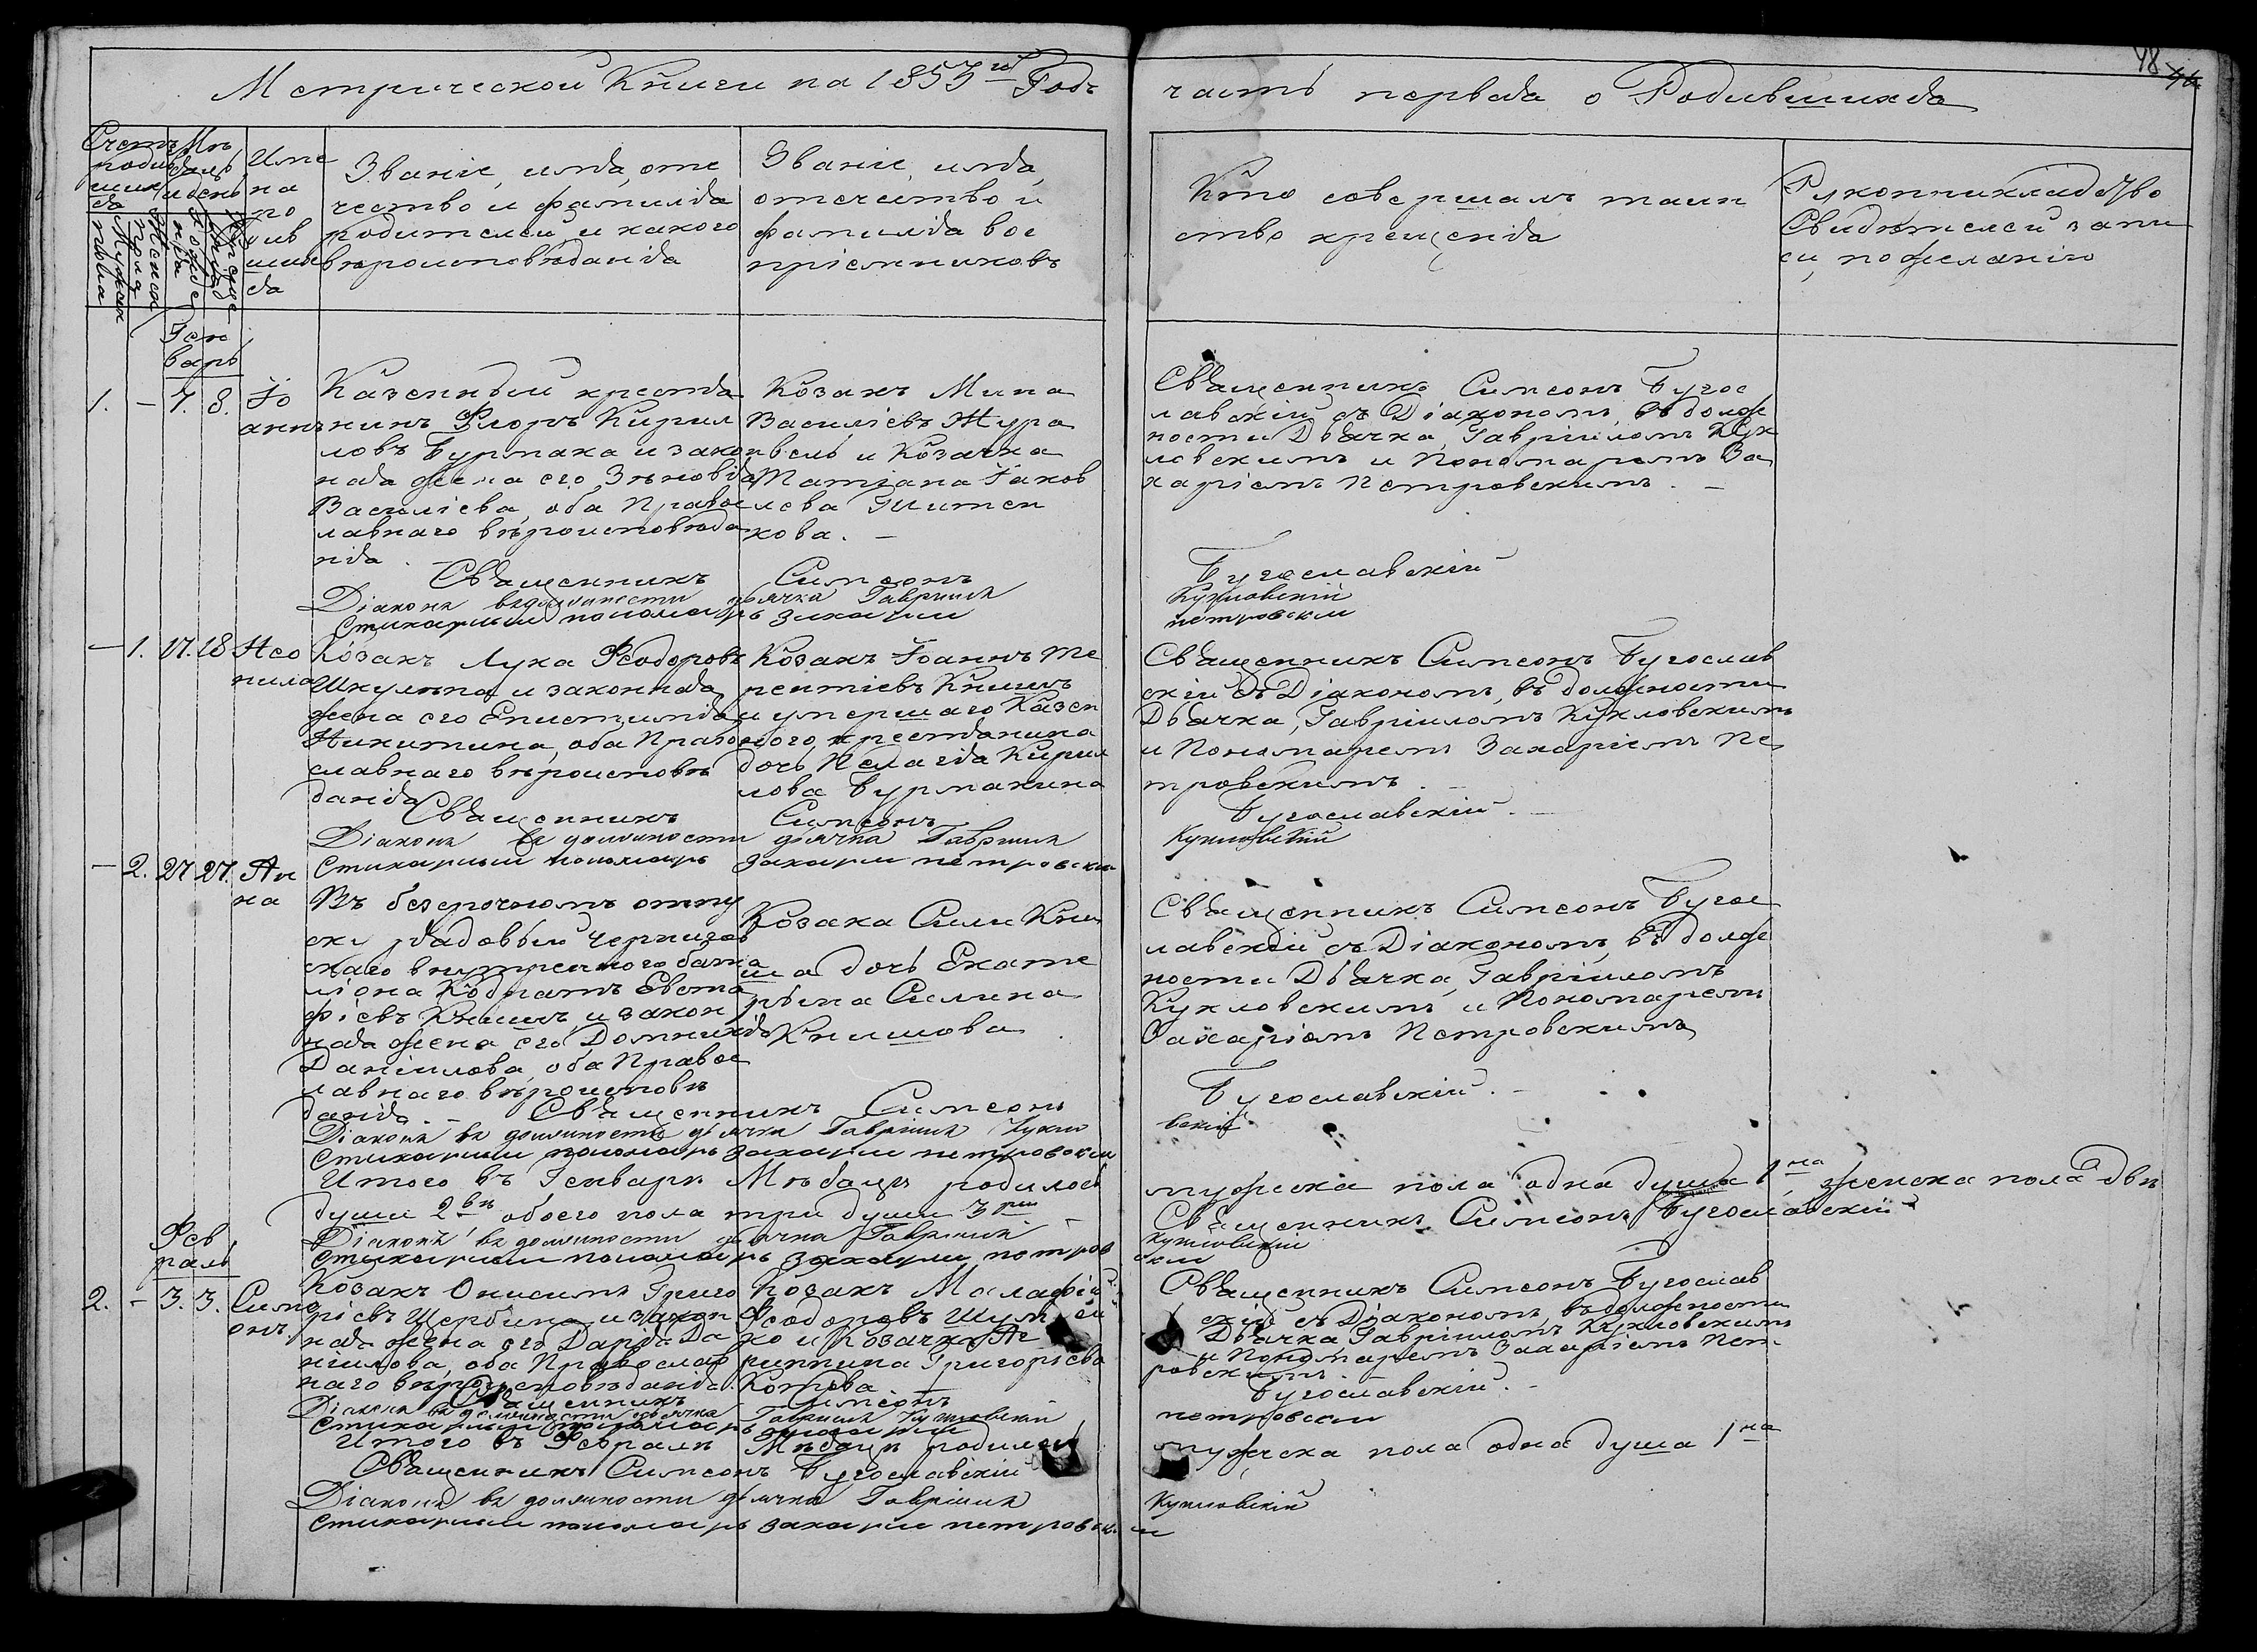 48
Метрической Книги на 1853й Годъ
часть первая о Родившихся
Счетъ родившихся
Мужеска пола
Женска пола
Мѣсяцъ и день
рожденія
крещенія
Имена родившихся
Званіе, имя, оте
чество и фамилія
родителей и какого
вѣроисповѣданія
Званіе, имя,
отечество и
фамилія вос
пріемниковъ
Кто совершалъ таин
ство крещенія
Рукоприкладство
Свидѣтелей запи
си, по желанію
Генварь
1. – 7. 8. Іоаннъ
Казенный крестья
нинъ Флоръ Кирил
ловъ Бурмака и закон
ная жена его Зѣновія
Василіева, оба Правос
лавнаго вѣроисповѣда
нія.
Козакъ Мина
Василіевъ Жура
вель и Козачка
Татіана Іаков
лева
кова. –
Священникъ Симеонъ Бугос
лавскій съ Діакономъ, въ долж
ности Дьячка, Гавріиломъ Кук
ловскимъ и Пономаремъ За
харіемъ Петровскимъ. –
Священникъ Симеонъ Бугославскій
Діаконъ въ должности дьячка Гавріилъ Кукловскій
Стихарный пономарь Захарій Петровскій
– 1. 17. 18 Неонила
Козакъ Лука Ѳеодоровъ
Шкулѣпа и законная
жена его Епистимія
Никитина, оба Правос
славнаго вѣроисповѣ
данія
Козакъ Іоаннъ Те
рентіевъ Книшъ
и умершаго Казен
ного крестьянина
дочь Пелагія Кирил
лова Бурмакина
Священникъ Симеонъ Бугослав
скій съ Діакономъ, въ должности
Дьячка, Гавріиломъ Кукловскимъ
и Пономаремъ Захаріемъ Пе
тровскимъ. –
Священникъ Симеонъ Бугославскій. –
Діаконъ въ должности дьячка Гавріилъ Кукловскій
Стихарный пономарь Захарій Петровскій
– 2. 27 27. Анна
Въ безсрочномъ отпу
ску рядовый Чернигов
скаго внутренного бата
ліона Кодратъ Евста
фіевъ Книшъ и закон
ная жена его Домникія
Даніилова, оба Правос
лавнаго вѣроисповѣ
данія. –
Козака Силы Кни
ша дочь Екате
рѣна Силина
Книшова.
Священникъ Симеонъ Бугос
лавскій съ Діакономъ, въ долж
ности Дьячка, Гавріиломъ
Кукловскимъ и Пономаремъ
Захаріемъ Петровскимъ
Священникъ Симеонъ Бугославскій. –
Діаконъ въ должности дьячка Гавріилъ Кукловскій
Стихарный пономарь Захарій Петровскій
Итого въ Генварѣ Мѣсяцѣ родилось мужеска пола одна душа 1на, женска пола двѣ
души 2вѣ обоего пола три души 3ри – Священникъ Симеонъ Бугославскій
Діаконъ въ должности дьячка Гавріилъ Кукловскій
Стихарный пономарь Захарій Петровскій
Февраль
2. – 3. 3. Симеонъ.
Козакъ Онисимъ Григо
ріевъ Щербина и закон
ная жена его Дарія Да
ніилова, оба Православ
наго вѣроисповѣданія.
Козакъ Малафій
Ѳеодоровъ
ко и Козачка Аг
риппина Григоріева
Священникъ Симеонъ Бугослав
скій съ Діакономъ, въ должности
Дьячка Гавріиломъ Кукловскимъ
и Пономаремъ Захаріемъ Пет
ровскимъ.
Священникъ Симеонъ Бугославскій. –
Діаконъ въ должности дьячка Гавріилъ Кукловскій
Стихарный пономарь Захарій Петровскій
Итого въ Февралѣ Мѣсяцѣ родилось мужеска пола одна душа 1на
Священникъ Симеонъ Бугославскій
Діаконъ въ должности дьячка Гавріилъ Кукловскій
Стихарный пономарь Захарій Петровскій